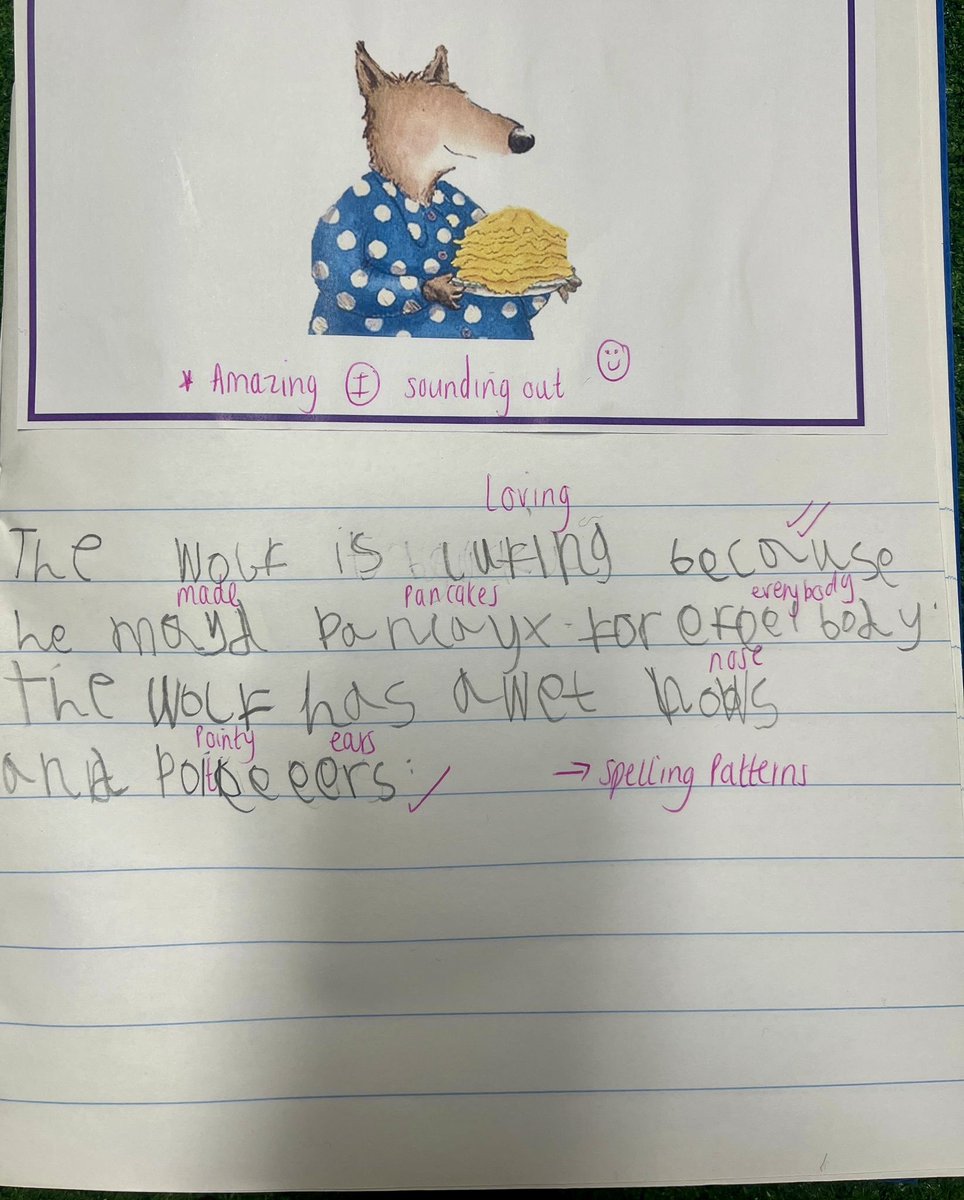 * Amazing I sounding out
Loving
The wolf is lufing because
made pancakes everybody
he mayd pancayx for efpeibody.
nose
the wolf has a wet nows
pointy ears
and poitee eers.
→ Spelling Patterns